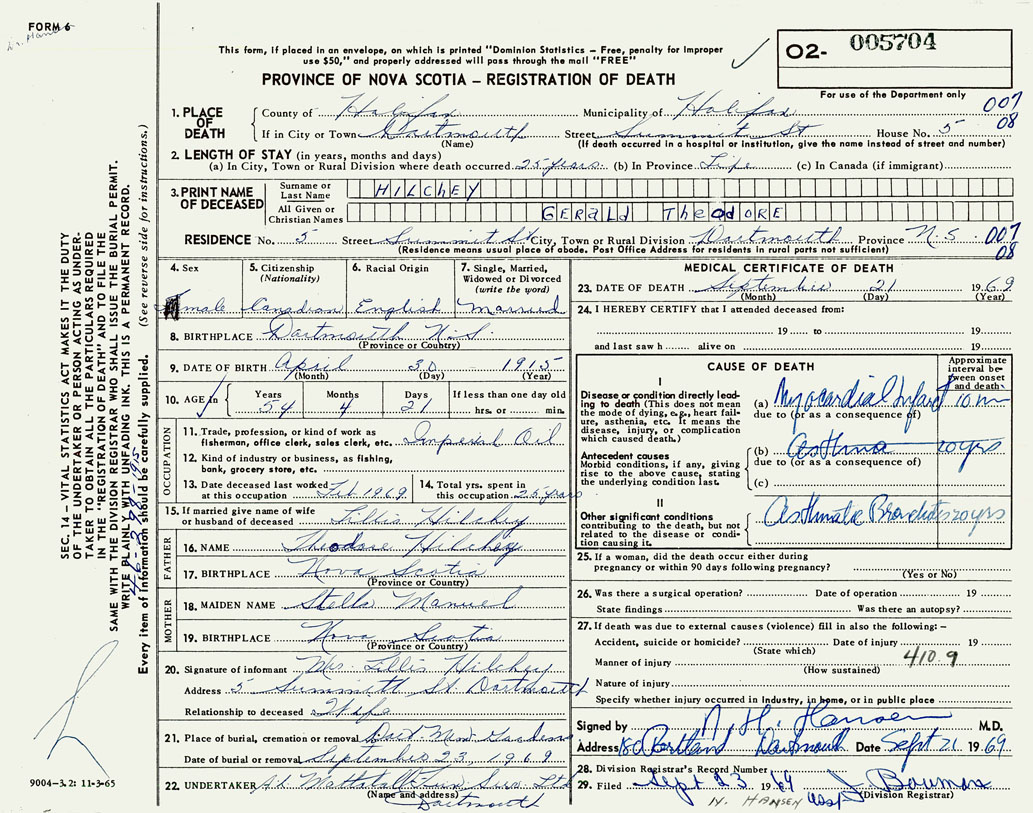 FORM 6
This form, if placed in an envelope, on which is printed "Dominion Statistics – Free, penalty for improper
use $50," and properly addressed will pass through the mail "FREE"
PROVINCE OF NOVA SCOTIA – REGISTRATION OF DEATH
O2- 005704
For use of the Department only
007
08
1. PLACE OF DEATH
County of Halifax Municipality of Halifax
If in City or Town Dartmouth Street Summit St House No. 5
(Name) (If death occurred in a hospital or institution, give the name instead of street and number)
2. LENGTH OF STAY (in years, months and days)
(a) In City, Town or Rural Division where death occurred 25 years (b) In Province Life (c) In Canada (if immigrant)
3. PRINT NAME OF DECEASED
Surname or Last Name HILCHEY
All Given or Christian Names GERALD TheodORE
RESIDENCE No. 5 Street Summit St City, Town or Rural Division Dartmouth Province N.S. 007
(Residence means usual place of abode. Post Office Address for residents in rural parts not sufficient) 08
4. Sex
male
5. Citizenship (Nationality)
Canadian
6. Racial Origin
English
7. Single, Married, Widowed or Divorced (write the word)
Married
8. BIRTHPLACE Dartmouth N.S.
(Province or Country)
9. DATE OF BIRTH April 30 1915
(Month) (Day) (Year)
10. AGE in Years Months Days If less than one day old
54 4 21 hrs. or min.
OCCUPATION
11. Trade, profession, or kind of work as
fisherman, office clerk, sales clerk, etc. Imperial Oil
12. Kind of industry or business, as fishing,
bank, grocery store, etc.
13. Date deceased last worked
at this occupation Feb 1969
14. Total yrs. spent in
this occupation 25 years
15. If married give name of wife
or husband of deceased Lillis Hilchey
FATHER
16. NAME Theodore Hilchey
17. BIRTHPLACE Nova Scotia
(Province or Country)
MOTHER
18. MAIDEN NAME Stella Manuel
19. BIRTHPLACE Nova Scotia
(Province or Country)
20. Signature of informant Mrs. Lillis Hilchey
Address 5 Summitt St. Dartmouth
Relationship to deceased Wife
21. Place of burial, cremation or removal Dart Mem Gardens
Date of burial or removal September 23, 1969
22. UNDERTAKER Mattatall Fun Serv Ltd
(Name and address)
Dartmouth
MEDICAL CERTIFICATE OF DEATH
23. DATE OF DEATH September 21 1969
(Month) (Day) (Year)
24. I HEREBY CERTIFY that I attended deceased from:
19 to 19
and last saw h alive on 19
CAUSE OF DEATH
Approximate interval between onset and death
I
Disease or condition directly leading to death (This does not mean the mode of dying, e.g., heart failure, asthenia, etc. It means the disease, injury, or complication which caused death.)
(a) Myocardial Infarct 10 m
due to (or as a consequence of)
Antecedent causes
Morbid conditions, if any, giving rise to the above cause, stating the underlying condition last.
(b) Asthma 20 yrs
due to (or as a consequence of)
(c)
II
Other significant conditions
contributing to the death, but not related to the disease or condition causing it.
Asthmatic Bronchitis 20 yrs
25. If a woman, did the death occur either during
pregnancy or within 90 days following pregnancy?
(Yes or No)
26. Was there a surgical operation? Date of operation 19
State findings Was there an autopsy?
27. If death was due to external causes (violence) fill in also the following: –
Accident, suicide or homicide? Date of injury 19
(State which)
Manner of injury 410.9
(How sustained)
Nature of injury
Specify whether injury occurred in industry, in home, or in public place
Signed by N. H. Hansen M.D.
Address Portland Dartmouth Date Sept 21 1969
28. Division Registrar's Record Number
29. Filed Sept 23 1969 J Bowman
(Division Registrar)
N. HANSEN
SEC. 14 – VITAL STATISTICS ACT MAKES IT THE DUTY
OF THE UNDERTAKER OR PERSON ACTING AS UNDER-
TAKER TO OBTAIN ALL THE PARTICULARS REQUIRED
IN THE "REGISTRATION OF DEATH" AND TO FILE THE
SAME WITH THE DIVISION REGISTRAR WHO SHALL ISSUE THE BURIAL PERMIT.
WRITE PLAINLY WITH UNFADING INK. THIS IS A PERMANENT RECORD.
Every item of information should be carefully supplied. (See reverse side for instructions.)
9004–3.2: 11-3-65